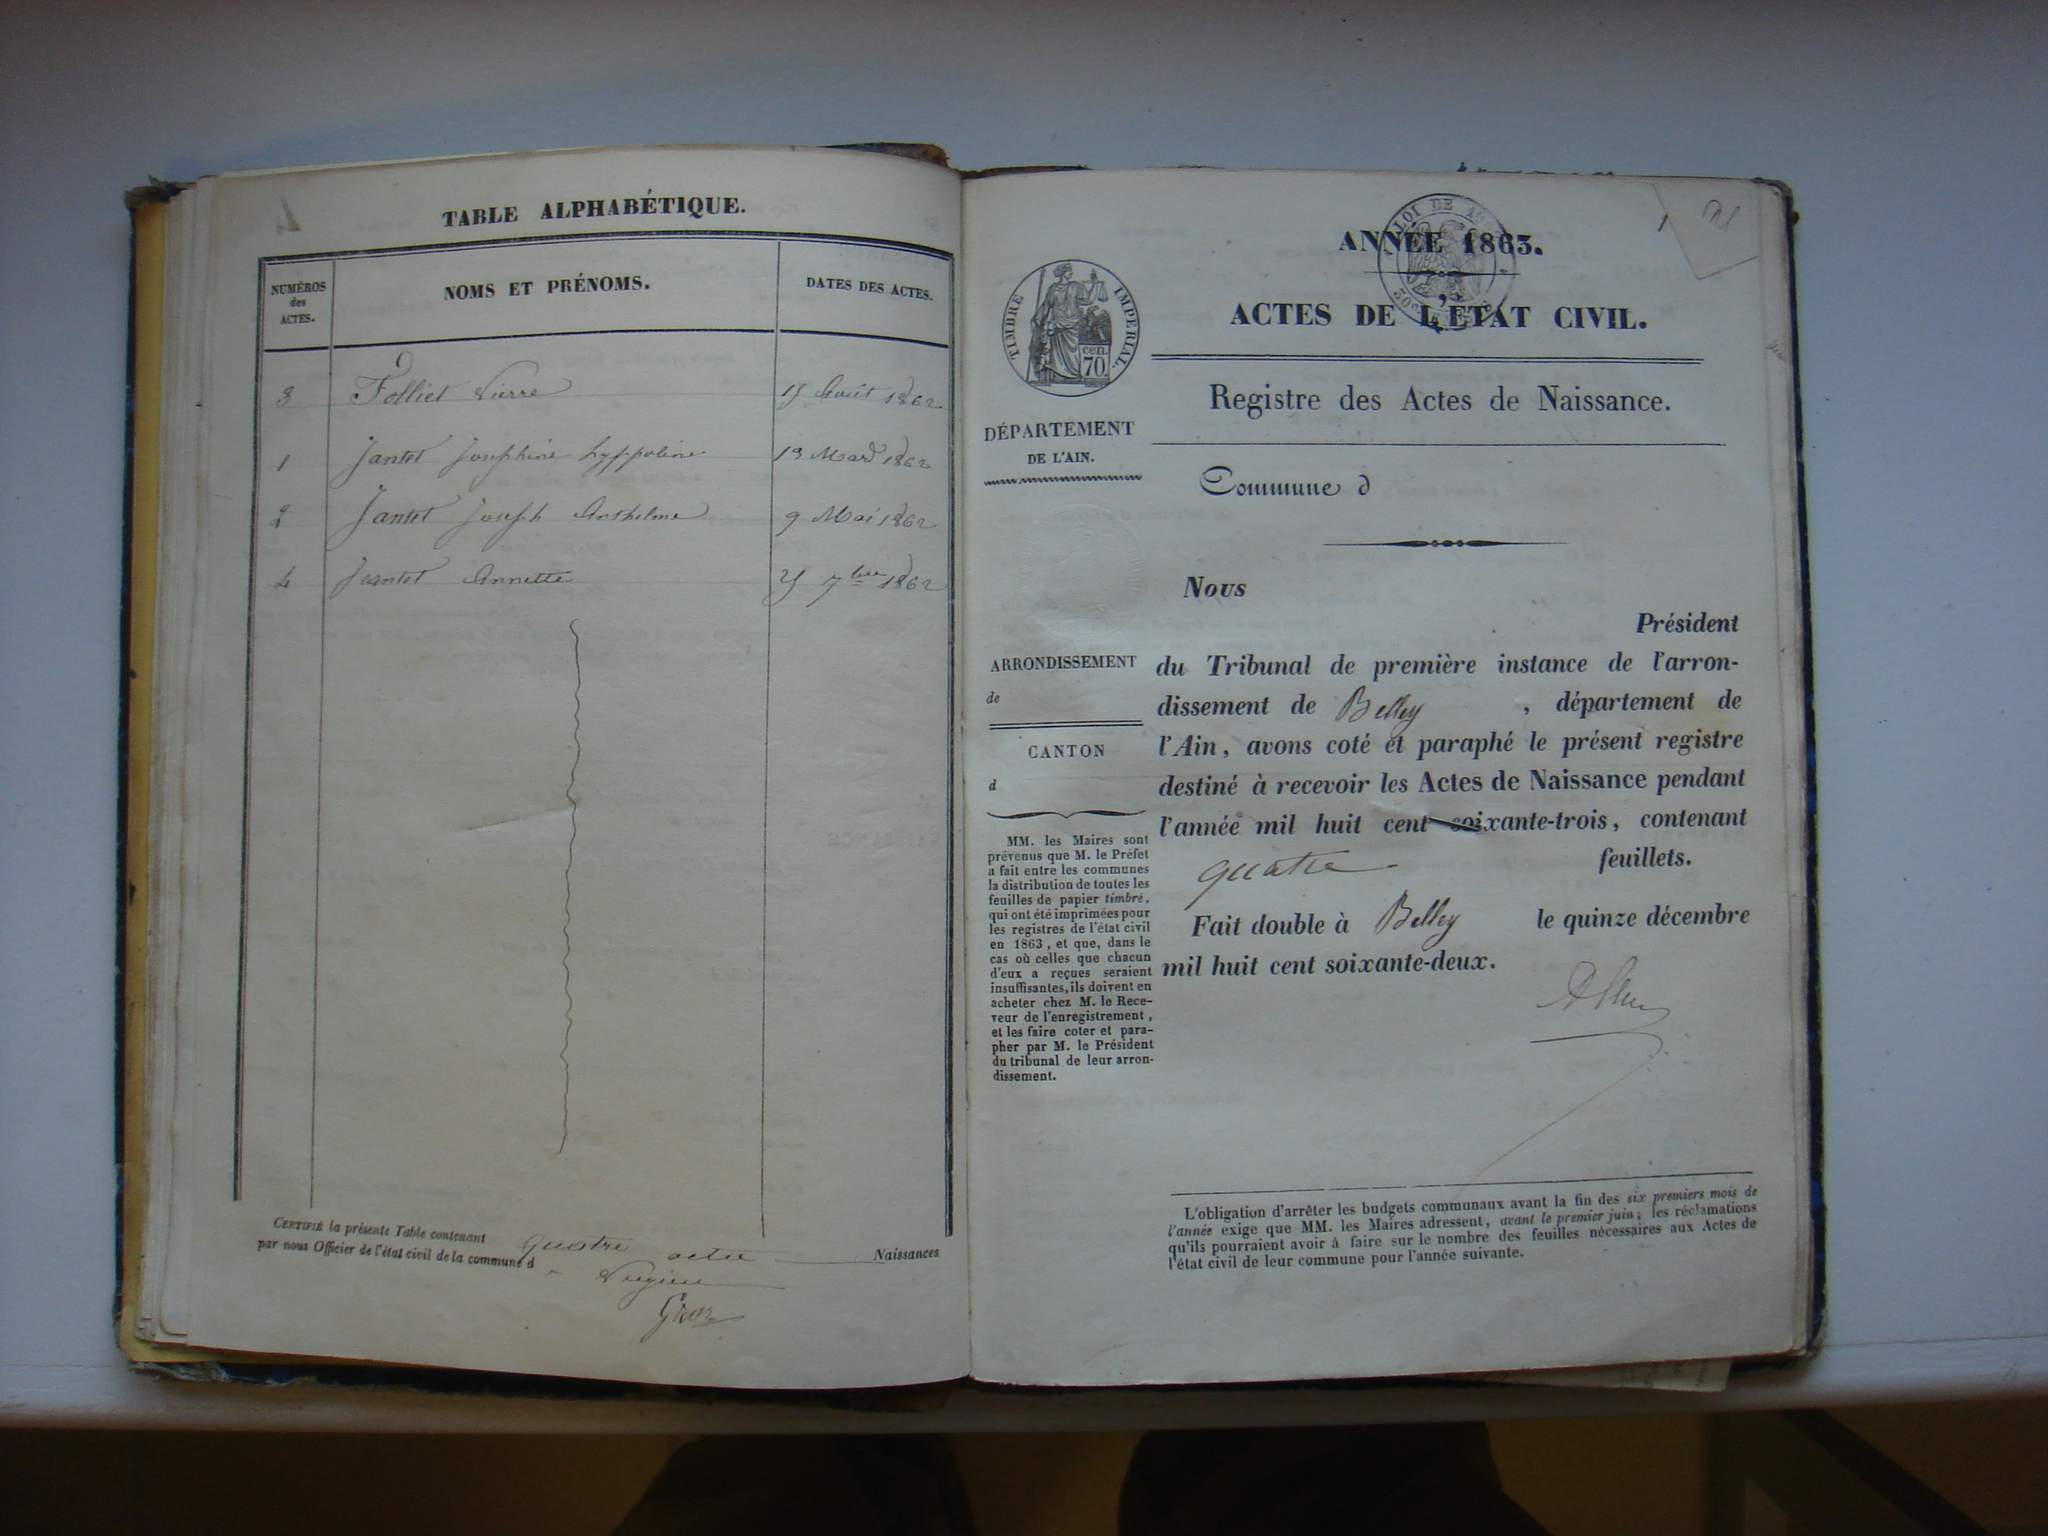 4
TABLE ALPHABÉTIQUE.
NUMÉROS des ACTES.
NOMS ET PRÉNOMS.
DATES DES ACTES.
3 Folliet Pierre 15 Août 1862
1 Jantet Joséphine hyppoline 19 Mars 1862
2 Jantet Joseph Anthelme 9 Mai 1862
4 Jeantet Annette 25 7bre 1862
CERTIFIÉ la présente Table contenant quatre actes Naissances
par nous Officier de l'état civil de la commune d Pugieu
Groz
1
ANNÉE 1863.
ACTES DE L'ÉTAT CIVIL.
TIMBRE IMPÉRIAL.
70 cen.
LOI DE
Registre des Actes de Naissance.
DÉPARTEMENT
DE L'AIN.
Commune d
Nous
Président
du Tribunal de première instance de l'arron-
dissement de Belley, département de
l'Ain, avons coté et paraphé le présent registre
destiné à recevoir les Actes de Naissance pendant
l'année mil huit cent soixante-trois, contenant
quatre feuillets.
Fait double à Belley le quinze décembre
mil huit cent soixante-deux.
ARRONDISSEMENT
de
CANTON
d
MM. les Maires sont
prévenus que M. le Préfet
a fait entre les communes
la distribution de toutes les
feuilles de papier timbré,
qui ont été imprimées pour
les registres de l'état civil
en 1863, et que, dans le
cas où celles que chacun
d'eux a reçues seraient
insuffisantes, ils doivent en
acheter chez M. le Rece-
veur de l'enregistrement,
et les faire coter et para-
pher par M. le Président
du tribunal de leur arron-
dissement.
L'obligation d'arrêter les budgets communaux avant la fin des six premiers mois de
l'année exige que MM. les Maires adressent, avant le premier juin, les réclamations
qu'ils pourraient avoir à faire sur le nombre des feuilles nécessaires aux Actes de
l'état civil de leur commune pour l'année suivante.